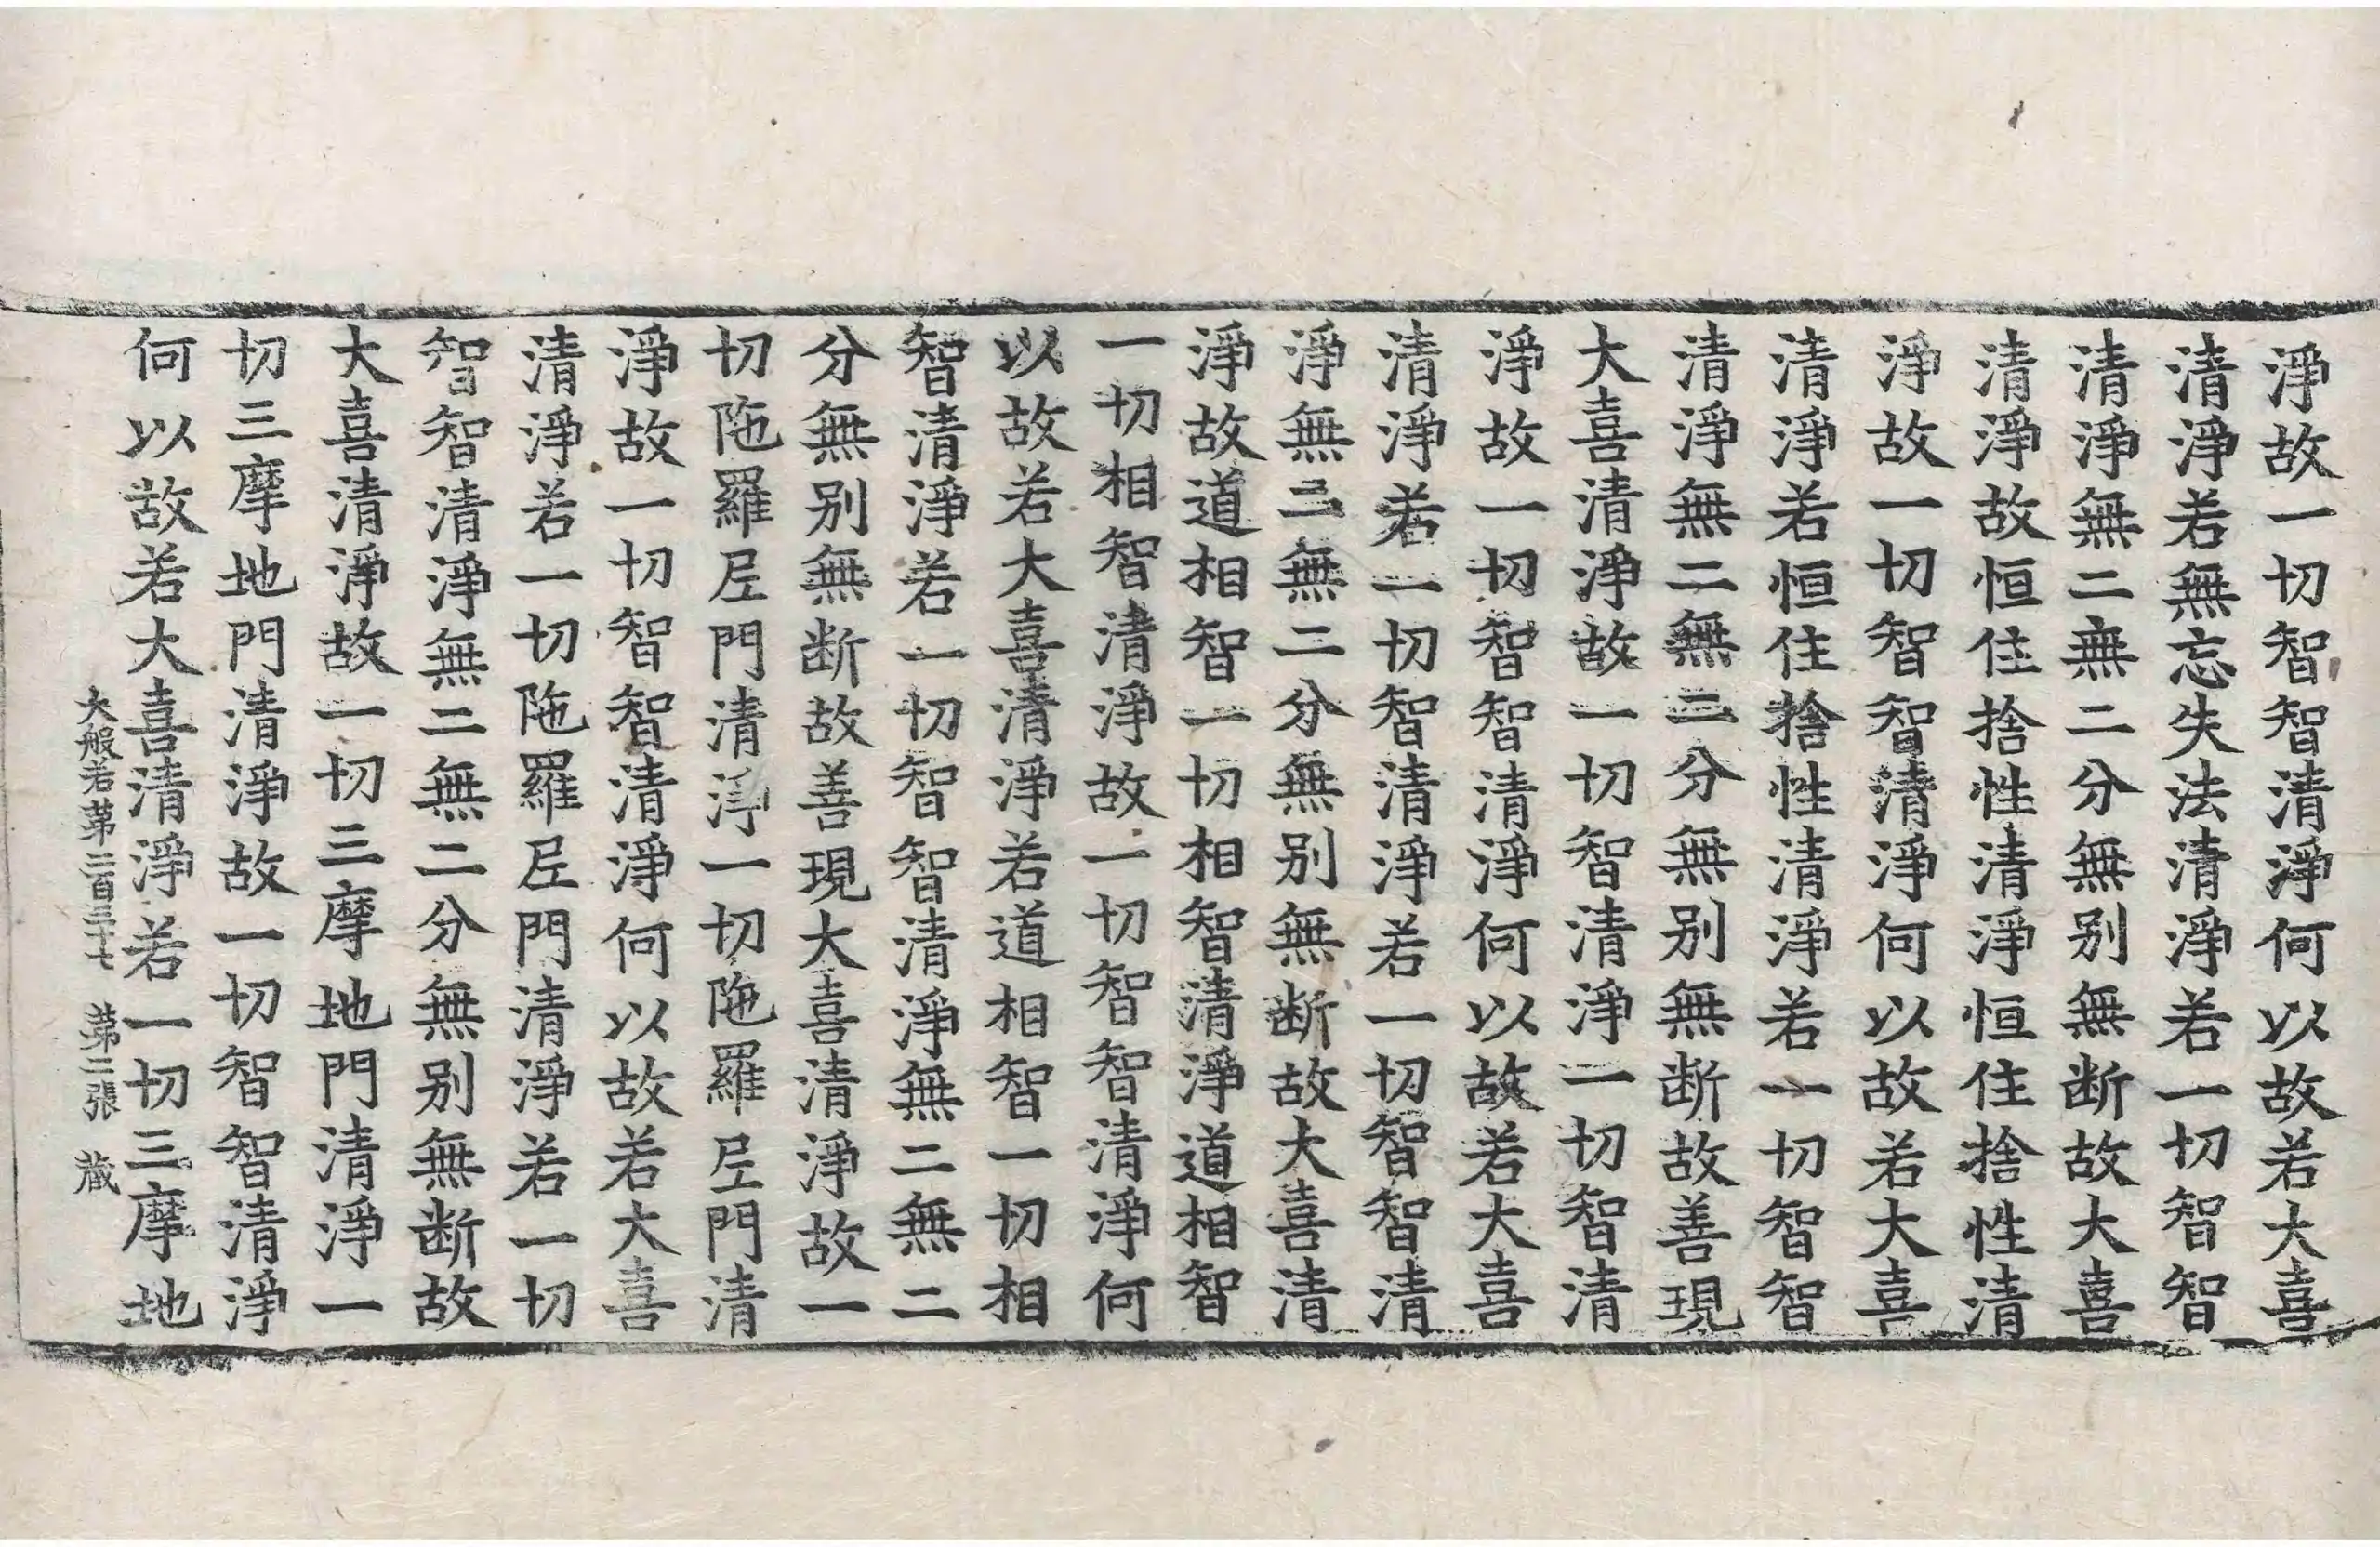 淨故一切智智清淨何以故若大喜
清淨若無忘失法清淨若一切智智
清淨無二無二分無别無断故大喜
清淨故恒住捨性清淨恒住捨性清
淨故一切智智清淨何以故若大喜
清淨若恒住捨性清淨若一切智智
清淨無二無二分無别無断故善現
大喜清淨故一切智清淨一切智清
淨故一切智智清淨何以故若大喜
清淨若一切智清淨若一切智智清
淨無二無二分無别無断故大喜清
淨故道相智一切相智清淨道相智
一切相智清淨故一切智智清淨何
以故若大喜清淨若道相智一切相
智清淨若一切智智清淨無二無二
分無别無断故善現大喜清淨故一
切陁羅𡰱門清淨一切陁羅𡰱門清
淨故一切智智清淨何以故若大喜
清淨若一切陁羅𡰱門清淨若一切
智智清淨無二無二分無别無断故
大喜清淨故一切三摩地門清淨一
切三摩地門清淨故一切智智清淨
何以故若大喜清淨若一切三摩地
大般若苐二百三十七　苐二張　蔵